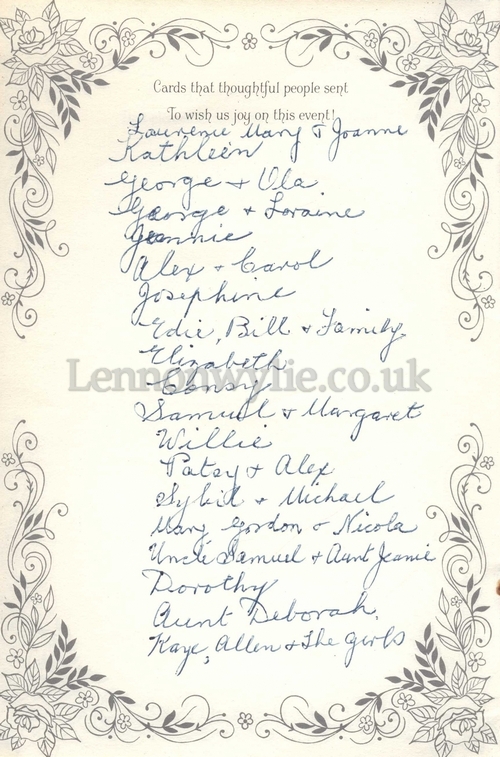 Cards that thoughtful people sent
To wish us joy on this event!
Laurence Mary & Joanne
Kathleen
George + Ula
George + Loraine
Jeannie
Alex + Carol
Josephine
Edie, Bill + Family
Elizabeth
Lennonwylie.co.uk
Samuel + Margaret
Willie
Patsy + Alex
Sybil + Michael
Mary Gordon & Nicola
Uncle Samuel + Aunt Jeanie
Dorothy
Aunt Deborah.
Kaye, Allen + The girls